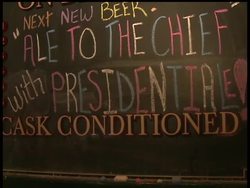 NEXT NEW BEER
"ALE TO THE CHIEF"
with PRESIDENTIALE!
CASK CONDITIONED